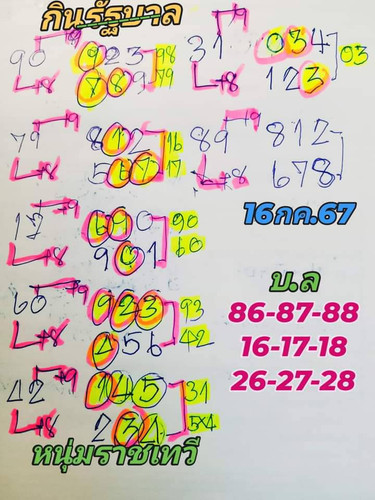 กินรัฐบาล
90 9 923 98
8 789 79
31 9 034 03
8 123
79 9 812 16
8 567 17
89 9 812
8 678
12 9 690 90
8 901 60
16กค.67
60 9 923 93
8 456 42
บ.ล
86-87-88
16-17-18
26-27-28
42 9 145 31
8 234 54
หนุ่มราชเทวี